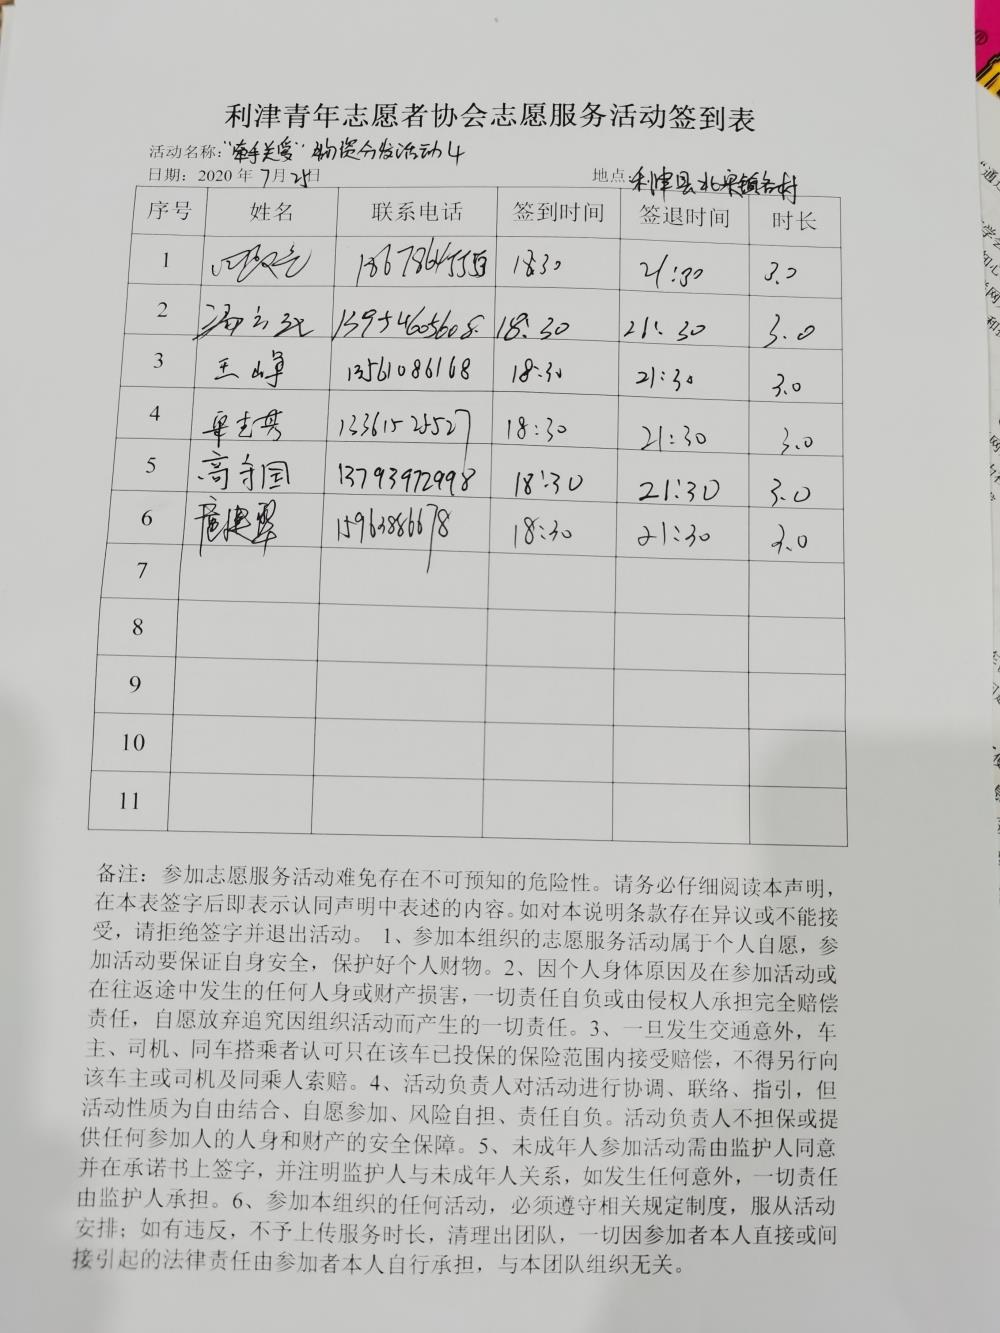 利津青年志愿者协会志愿服务活动签到表
活动名称："牵手关爱"物资分发活动4
日期：2020年7月25日 地点：利津县北宋镇各村
序号 姓名 联系电话 签到时间 签退时间 时长
1 18:30 21:30 3.0
2 13954605608 18:30 21:30 3.0
3 王峰 13561086168 18:30 21:30 3.0
4 13361525527 18:30 21:30 3.0
5 高守国 13793972998 18:30 21:30 3.0
6 15963886678 18:30 21:30 3.0
7
8
9
10
11
备注：参加志愿服务活动难免存在不可预知的危险性。请务必仔细阅读本声明，
在本表签字后即表示认同声明中表述的内容。如对本说明条款存在异议或不能接
受，请拒绝签字并退出活动。 1、参加本组织的志愿服务活动属于个人自愿，参
加活动要保证自身安全，保护好个人财物。2、因个人身体原因及在参加活动或
在往返途中发生的任何人身或财产损害，一切责任自负或由侵权人承担完全赔偿
责任，自愿放弃追究因组织活动而产生的一切责任。3、一旦发生交通意外，车
主、司机、同车搭乘者认可只在该车已投保的保险范围内接受赔偿，不得另行向
该车主或司机及同乘人索赔。4、活动负责人对活动进行协调、联络、指引，但
活动性质为自由结合、自愿参加、风险自担、责任自负。活动负责人不担保或提
供任何参加人的人身和财产的安全保障。5、未成年人参加活动需由监护人同意
并在承诺书上签字，并注明监护人与未成年人关系，如发生任何意外，一切责任
由监护人承担。6、参加本组织的任何活动，必须遵守相关规定制度，服从活动
安排；如有违反，不予上传服务时长，清理出团队，一切因参加者本人直接或间
接引起的法律责任由参加者本人自行承担，与本团队组织无关。